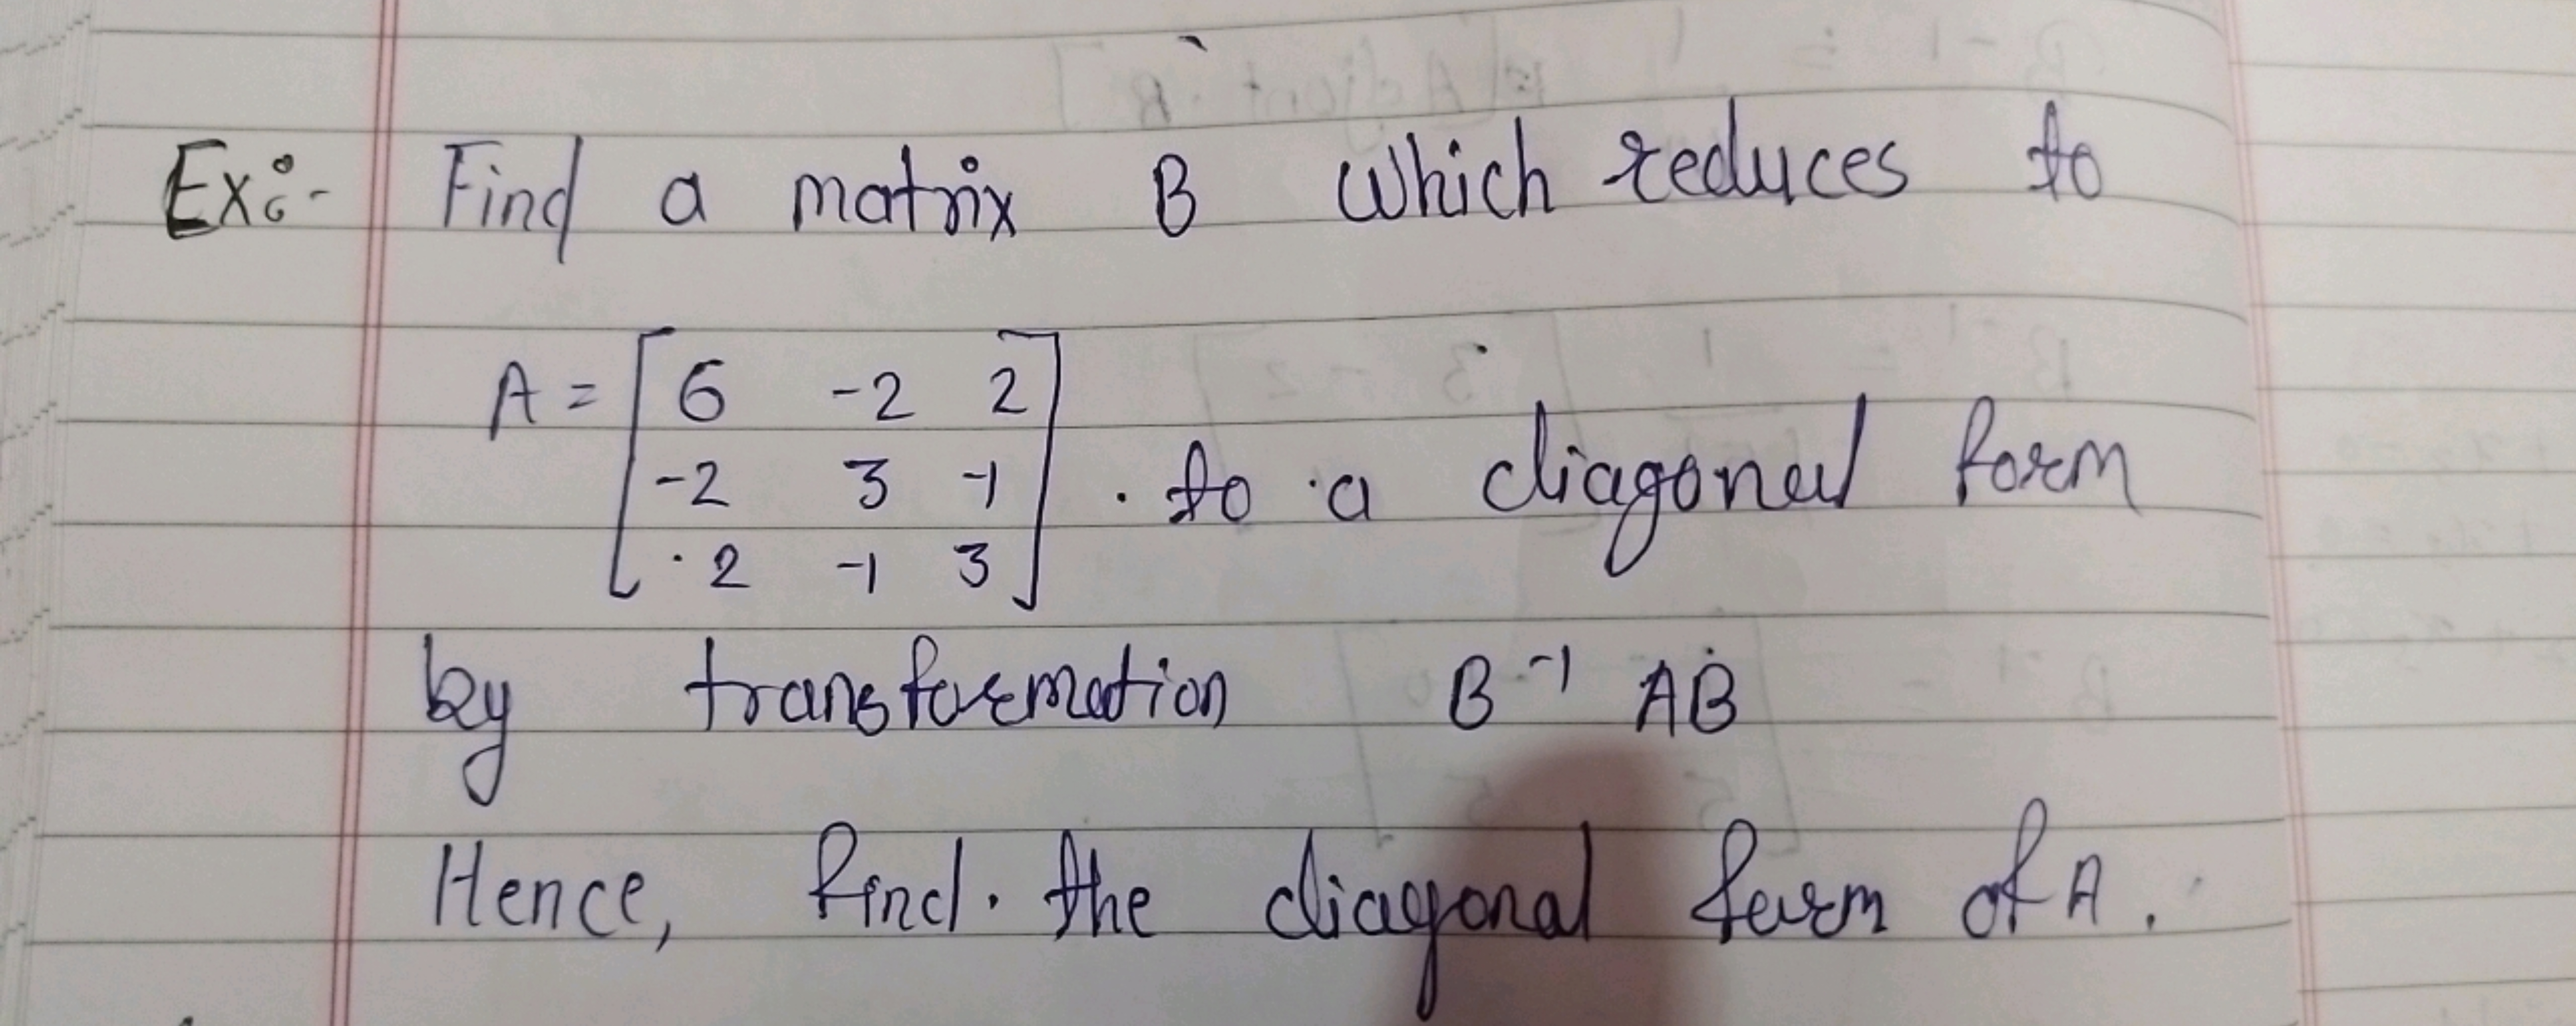 Ex:- Find a matrix B which reduces to
A = [ 6 -2 2
-2 3 -1 . to a diagonal form
2 -1 3 ]
by transformation B⁻¹ AB
Hence, find. the diagonal form of A.